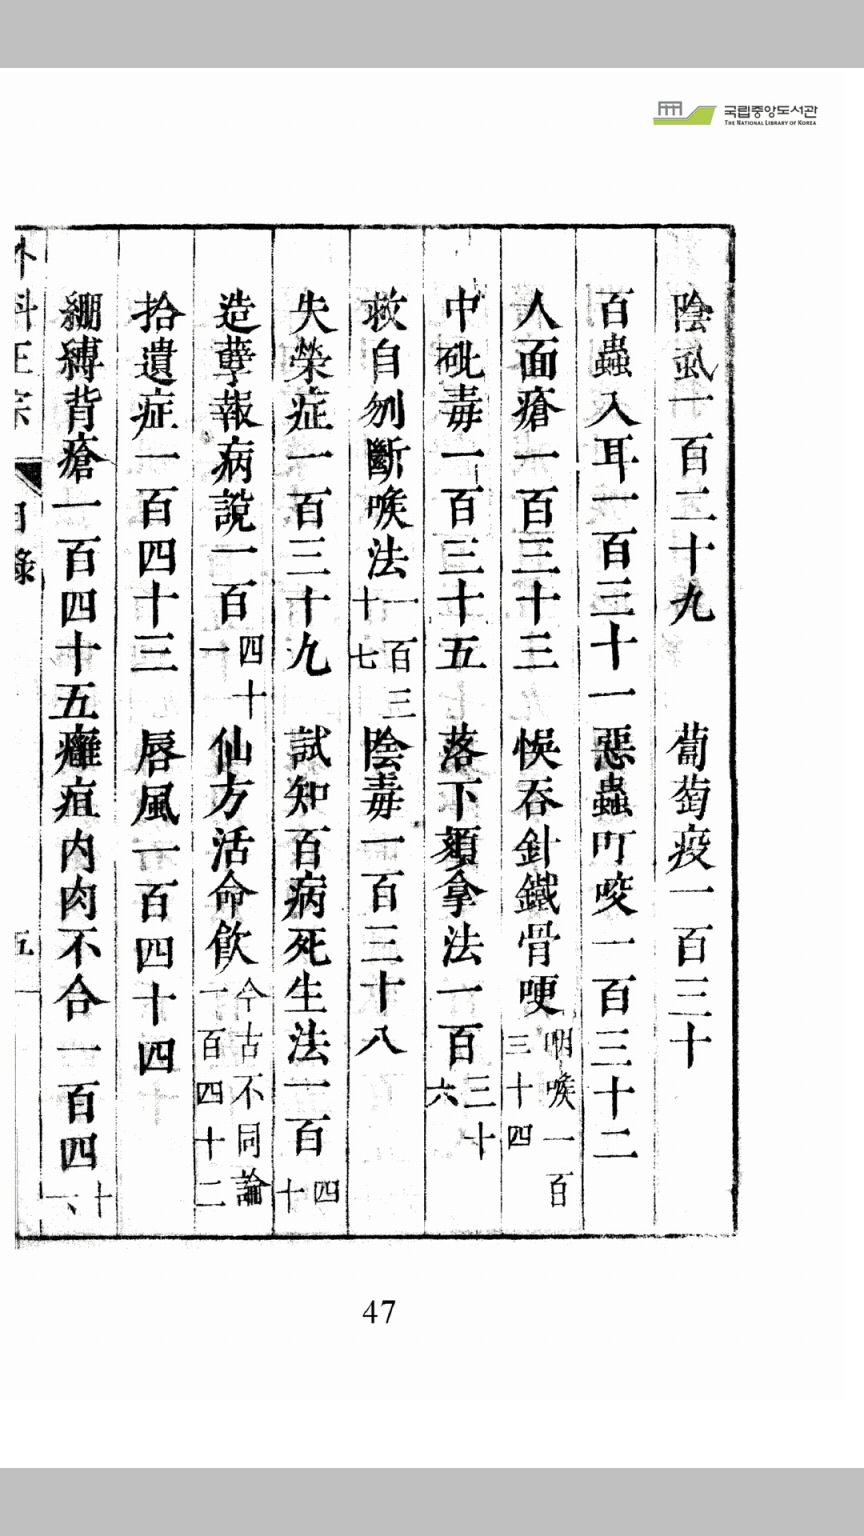 국립중앙도서관
THE NATIONAL LIBRARY OF KOREA
陰虱一百二十九 葡萄疫一百三十
百蟲入耳一百三十一 惡蟲叮咬一百三十二
人面瘡一百三十三 悞吞針鐵骨哽咽喉一百三十四
中砒毒一百三十五 落下頦拿法一百三十六
救自刎斷喉法一百三十七 陰毒一百三十八
失榮症一百三十九 試知百病死生法一百四十
造孽報病說一百四十一 仙方活命飲今古不同論一百四十二
拾遺症一百四十三 唇風一百四十四
綳縛背瘡一百四十五 癰疽内肉不合一百四十六
外科正宗 目錄 五
47